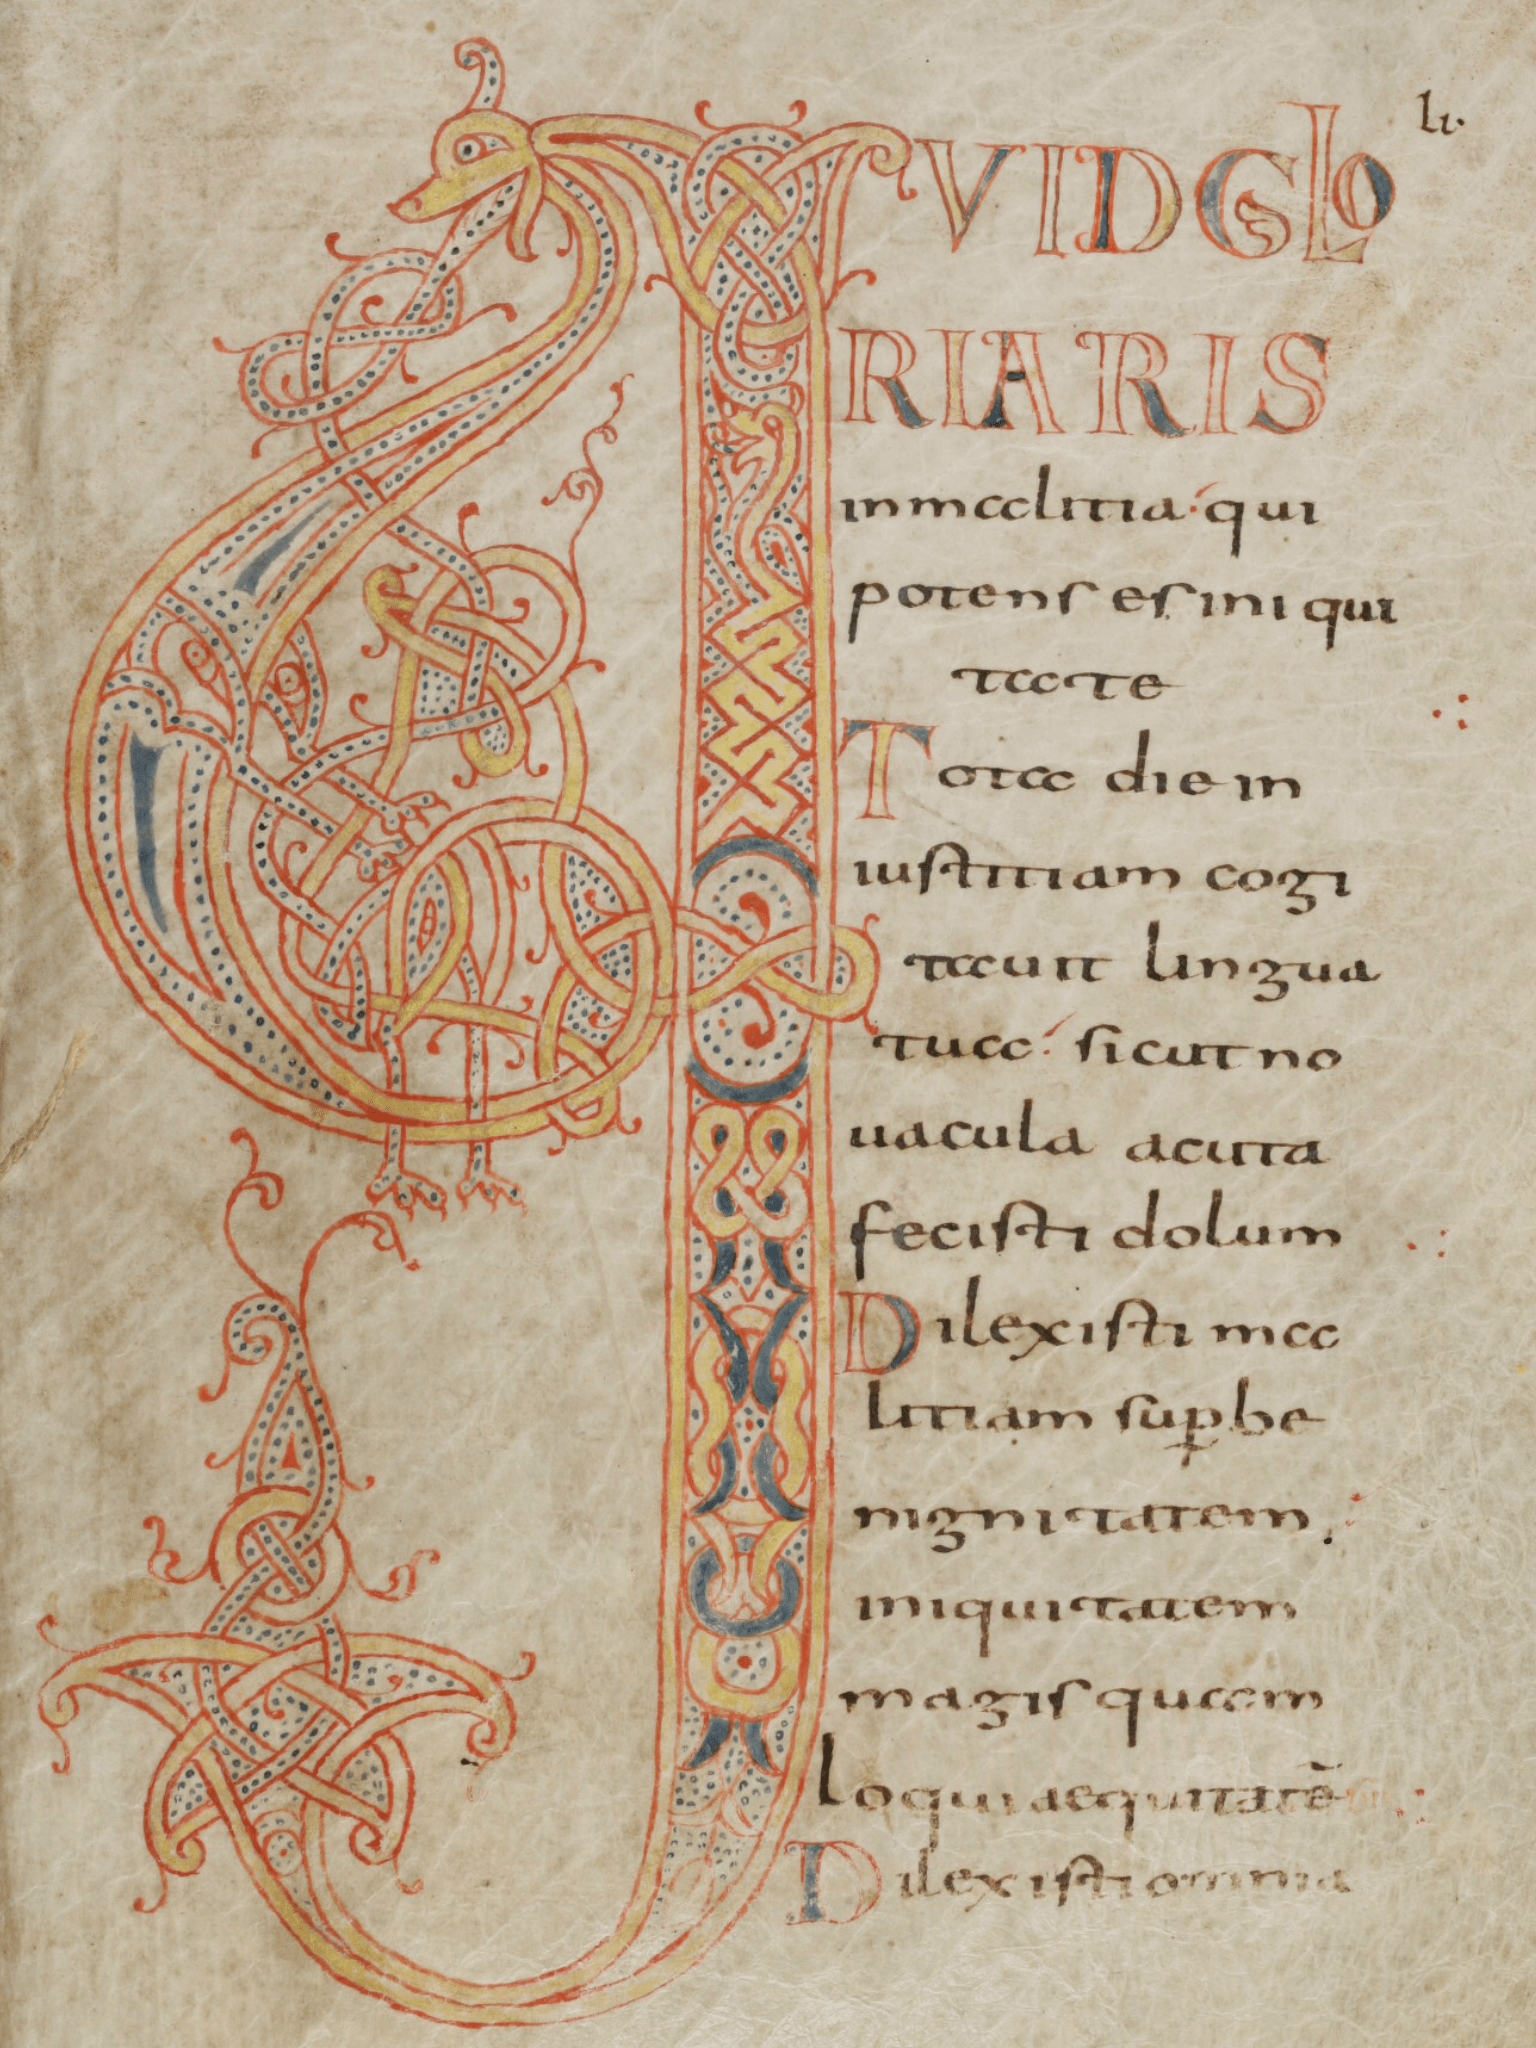 li·
QVID GLO
RIARIS
in malitia· qui
potens es ini qui
tate
Tota die in
iustitiam cogi
tauit lingua
tua· sicut no
uacula acuta
fecisti dolum
Dilexisti ma
litiam sup̱be
nignitatem
iniquitatem
magis quam
loqui aequitatē
Dilexisti omnia